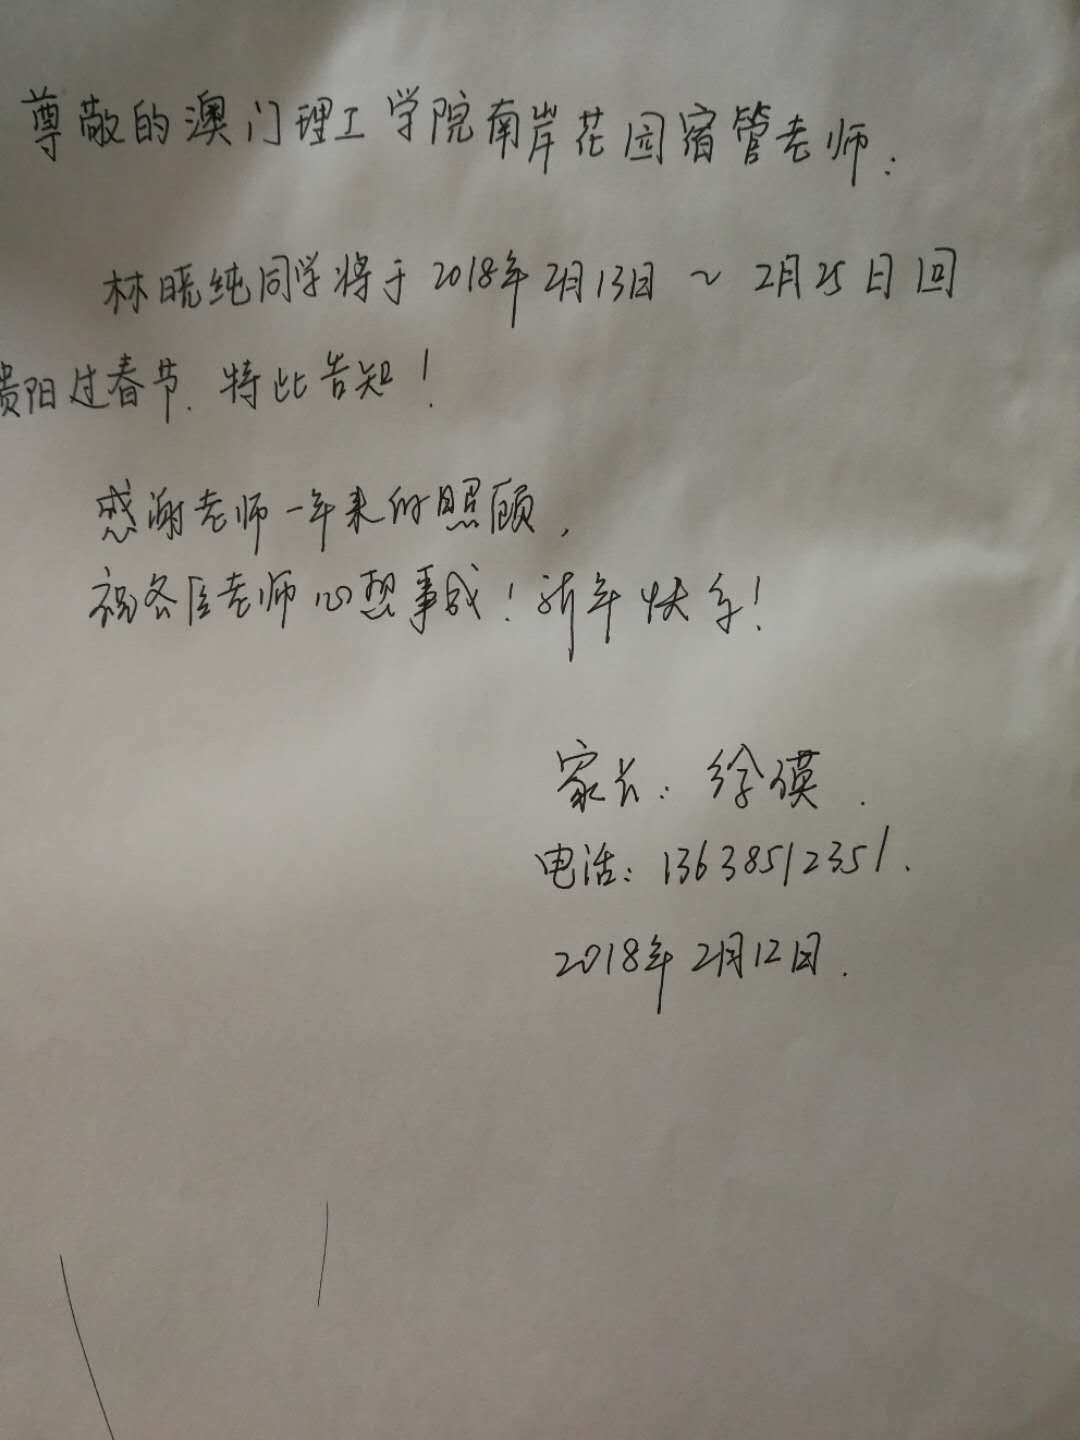 尊敬的澳门理工学院南岸花园宿管老师:
林晓纯同学将于2018年2月13日～2月25日回
贵阳过春节.特此告知!
感谢老师一年来的照顾,
祝各位老师心想事成!新年快乐!
家长:徐瑛.
电话:13638512351.
2018年2月12日.